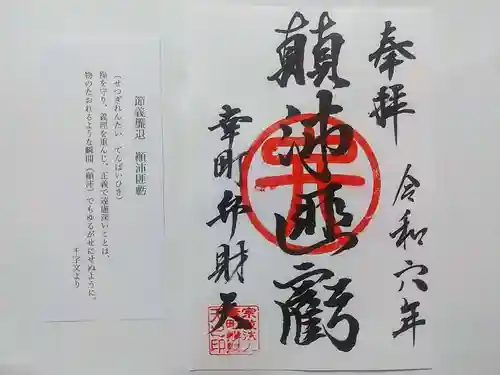 奉拝
令和六年
顛沛匪虧
幸町弁財天
節義廉退　顛沛匪虧
（せつぎれんたい　てんぱいひき）
操を守り、義理を重んじ、正義で遠慮深いことは、
物のたおれるような瞬間（顛沛）でもゆるがせにせぬように。
千字文より